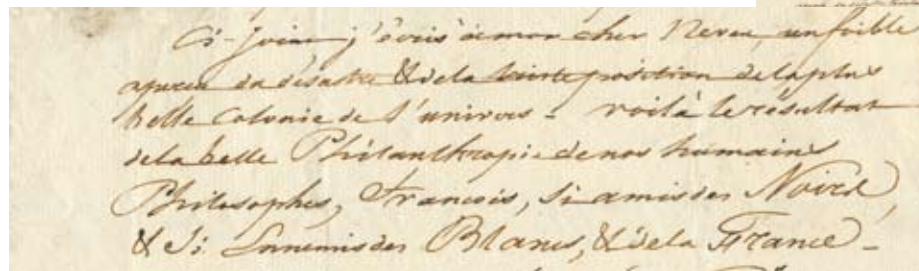 Ci-Joint j'écris à mon cher Neveu, un foible
aperçu du désastre & de la triste position de la plus
belle Colonie de l'univers - voilà le résultat
de la belle Philanthropie de nos humains
Philosophes, François, si amis des Noirs,
& si Ennemis des Blancs, & de la France -